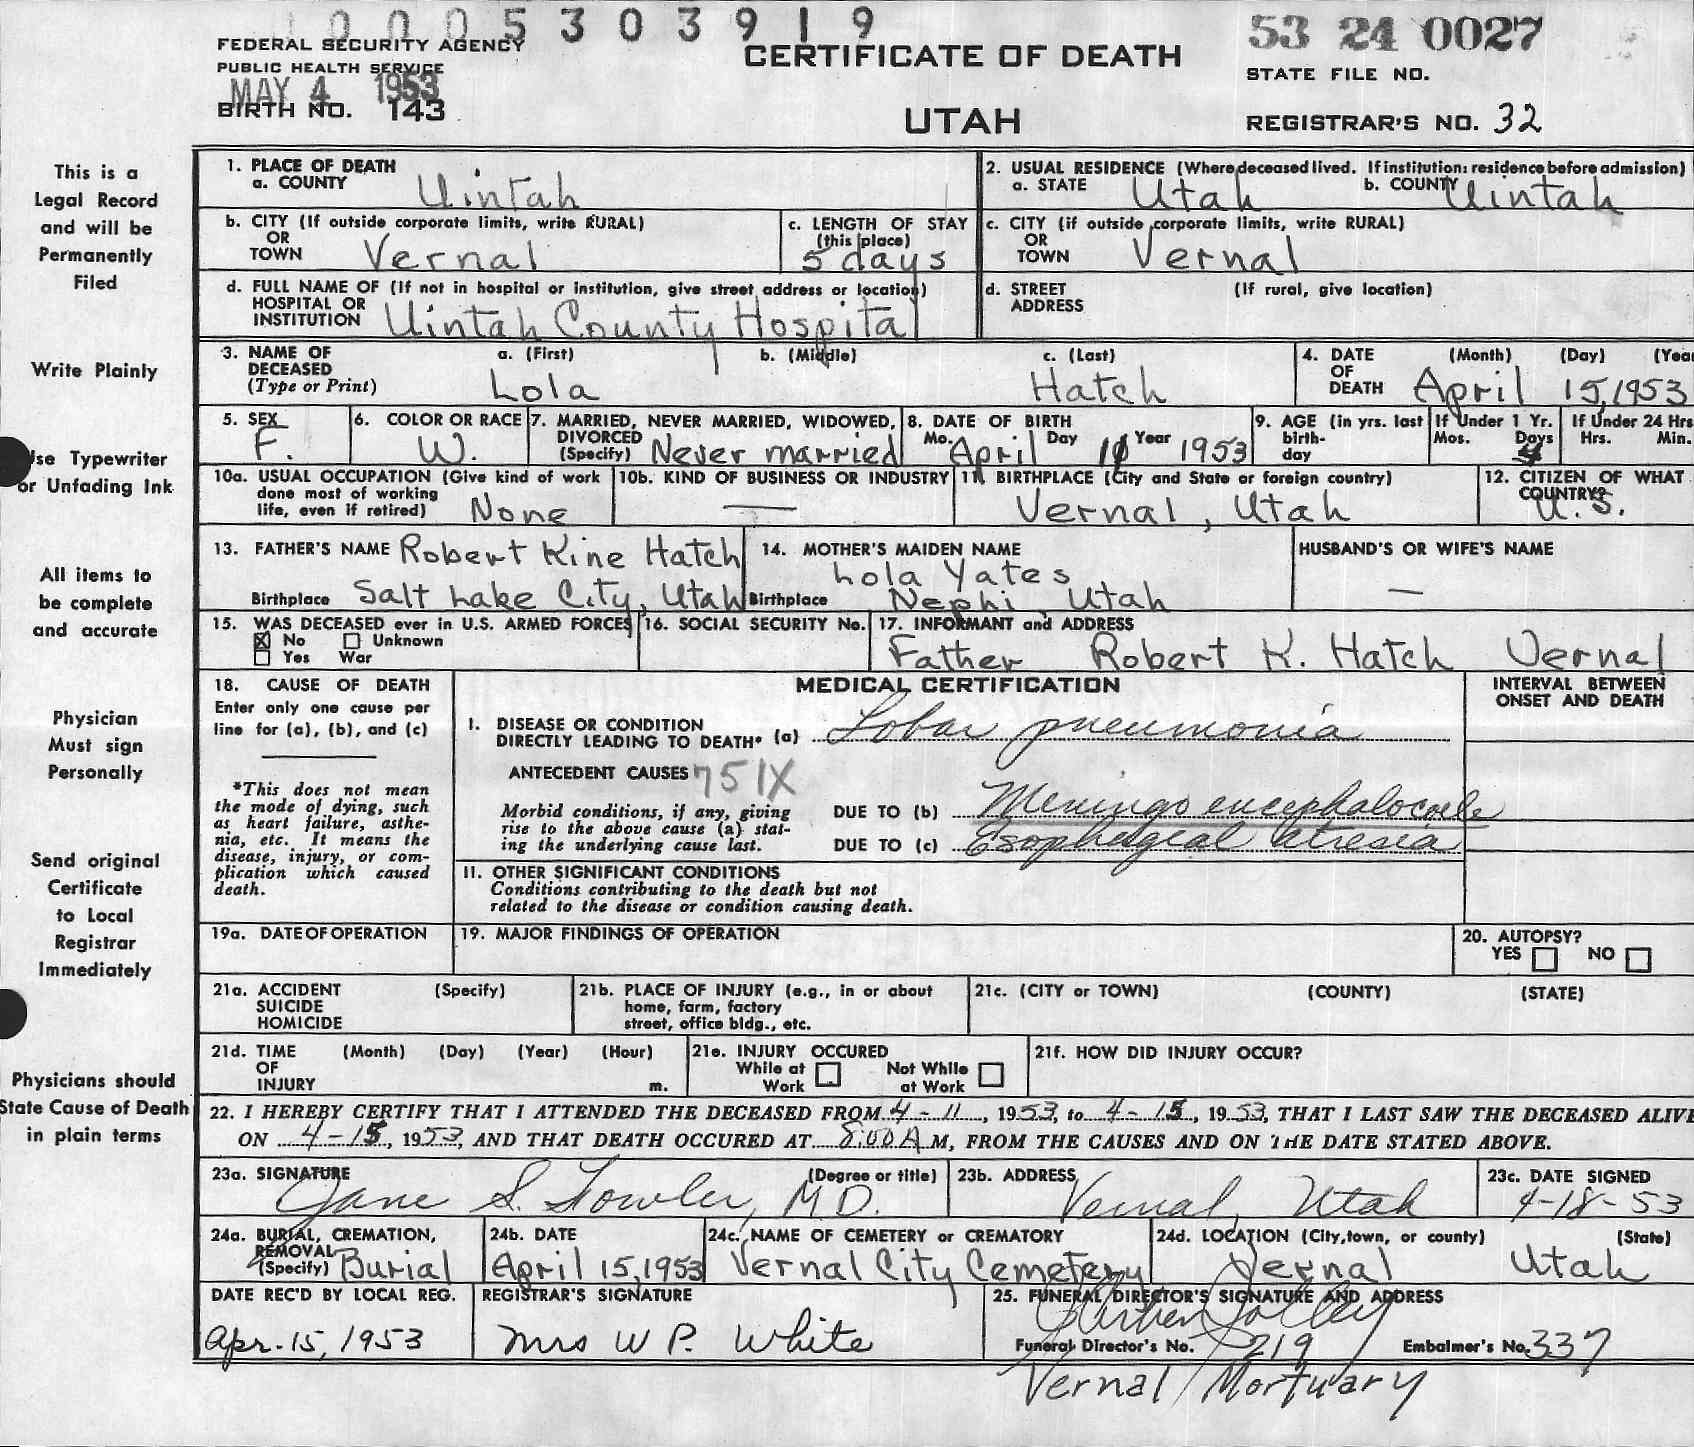 1000530 3919
53 24 0027
FEDERAL SECURITY AGENCY
PUBLIC HEALTH SERVICE
MAY 4 1953
BIRTH NO. 143
CERTIFICATE OF DEATH
UTAH
STATE FILE NO.
REGISTRAR'S NO. 32
This is a
Legal Record
and will be
Permanently
Filed
Write Plainly
Use Typewriter
or Unfading Ink
All items to
be complete
and accurate
Physician
Must sign
Personally
Send original
Certificate
to Local
Registrar
Immediately
Physicians should
State Cause of Death
in plain terms
1. PLACE OF DEATH
a. COUNTY Uintah
2. USUAL RESIDENCE (Where deceased lived. If institution: residence before admission)
a. STATE Utah b. COUNTY Uintah
b. CITY (If outside corporate limits, write RURAL)
OR
TOWN Vernal
c. LENGTH OF STAY
(this place)
5 days
c. CITY (if outside corporate limits, write RURAL)
OR
TOWN Vernal
d. FULL NAME OF (If not in hospital or institution, give street address or location)
HOSPITAL OR
INSTITUTION Uintah County Hospital
d. STREET (If rural, give location)
ADDRESS
3. NAME OF
DECEASED
(Type or Print)
a. (First) b. (Middle) c. (Last)
Lola Hatch
4. DATE (Month) (Day) (Year
OF
DEATH April 15, 1953
5. SEX
F.
6. COLOR OR RACE
W.
7. MARRIED, NEVER MARRIED, WIDOWED,
DIVORCED
(Specify) Never married
8. DATE OF BIRTH
Mo. Day Year
April 11 1953
9. AGE (in yrs. last
birth-
day
If Under 1 Yr.
Mos. Days
4
If Under 24 Hrs
Hrs. Min.
10a. USUAL OCCUPATION (Give kind of work
done most of working
life, even if retired) None
10b. KIND OF BUSINESS OR INDUSTRY
—
11. BIRTHPLACE (City and State or foreign country)
Vernal, Utah
12. CITIZEN OF WHAT
COUNTRY?
U.S.
13. FATHER'S NAME Robert Kine Hatch
Birthplace Salt Lake City, Utah
14. MOTHER'S MAIDEN NAME
Lola Yates
Birthplace Nephi, Utah
HUSBAND'S OR WIFE'S NAME
—
15. WAS DECEASED ever in U.S. ARMED FORCES
☒ No ☐ Unknown
☐ Yes War
16. SOCIAL SECURITY No.
17. INFORMANT and ADDRESS
Father Robert K. Hatch Vernal
18. CAUSE OF DEATH
Enter only one cause per
line for (a), (b), and (c)
*This does not mean
the mode of dying, such
as heart failure, asthe-
nia, etc. It means the
disease, injury, or com-
plication which caused
death.
MEDICAL CERTIFICATION
INTERVAL BETWEEN
ONSET AND DEATH
I. DISEASE OR CONDITION
DIRECTLY LEADING TO DEATH* (a) Lobar pneumonia
ANTECEDENT CAUSES 751X
Morbid conditions, if any, giving
rise to the above cause (a) stat-
ing the underlying cause last.
DUE TO (b) Meningo encephalocoele
DUE TO (c) Esophageal atresia
II. OTHER SIGNIFICANT CONDITIONS
Conditions contributing to the death but not
related to the disease or condition causing death.
19a. DATE OF OPERATION
19. MAJOR FINDINGS OF OPERATION
20. AUTOPSY?
YES ☐ NO ☐
21a. ACCIDENT (Specify)
SUICIDE
HOMICIDE
21b. PLACE OF INJURY (e.g., in or about
home, farm, factory
street, office bldg., etc.
21c. (CITY or TOWN) (COUNTY) (STATE)
21d. TIME (Month) (Day) (Year) (Hour)
OF
INJURY m.
21e. INJURY OCCURED
While at Work ☐ Not While at Work ☐
21f. HOW DID INJURY OCCUR?
22. I HEREBY CERTIFY THAT I ATTENDED THE DECEASED FROM 4-11, 1953, to 4-15, 1953, THAT I LAST SAW THE DECEASED ALIVE
ON 4-15, 1953, AND THAT DEATH OCCURED AT 8:00 A M, FROM THE CAUSES AND ON THE DATE STATED ABOVE.
23a. SIGNATURE (Degree or title)
Jane S. Fowler, M.D.
23b. ADDRESS
Vernal, Utah
23c. DATE SIGNED
4-18-53
24a. BURIAL, CREMATION,
REMOVAL
(Specify) Burial
24b. DATE
April 15, 1953
24c. NAME OF CEMETERY or CREMATORY
Vernal City Cemetery
24d. LOCATION (City, town, or county) (State)
Vernal Utah
DATE REC'D BY LOCAL REG.
Apr. 15, 1953
REGISTRAR'S SIGNATURE
Mrs W P. White
25. FUNERAL DIRECTOR'S SIGNATURE AND ADDRESS
Funeral Director's No. 219 Embalmer's No. 337
Vernal Mortuary